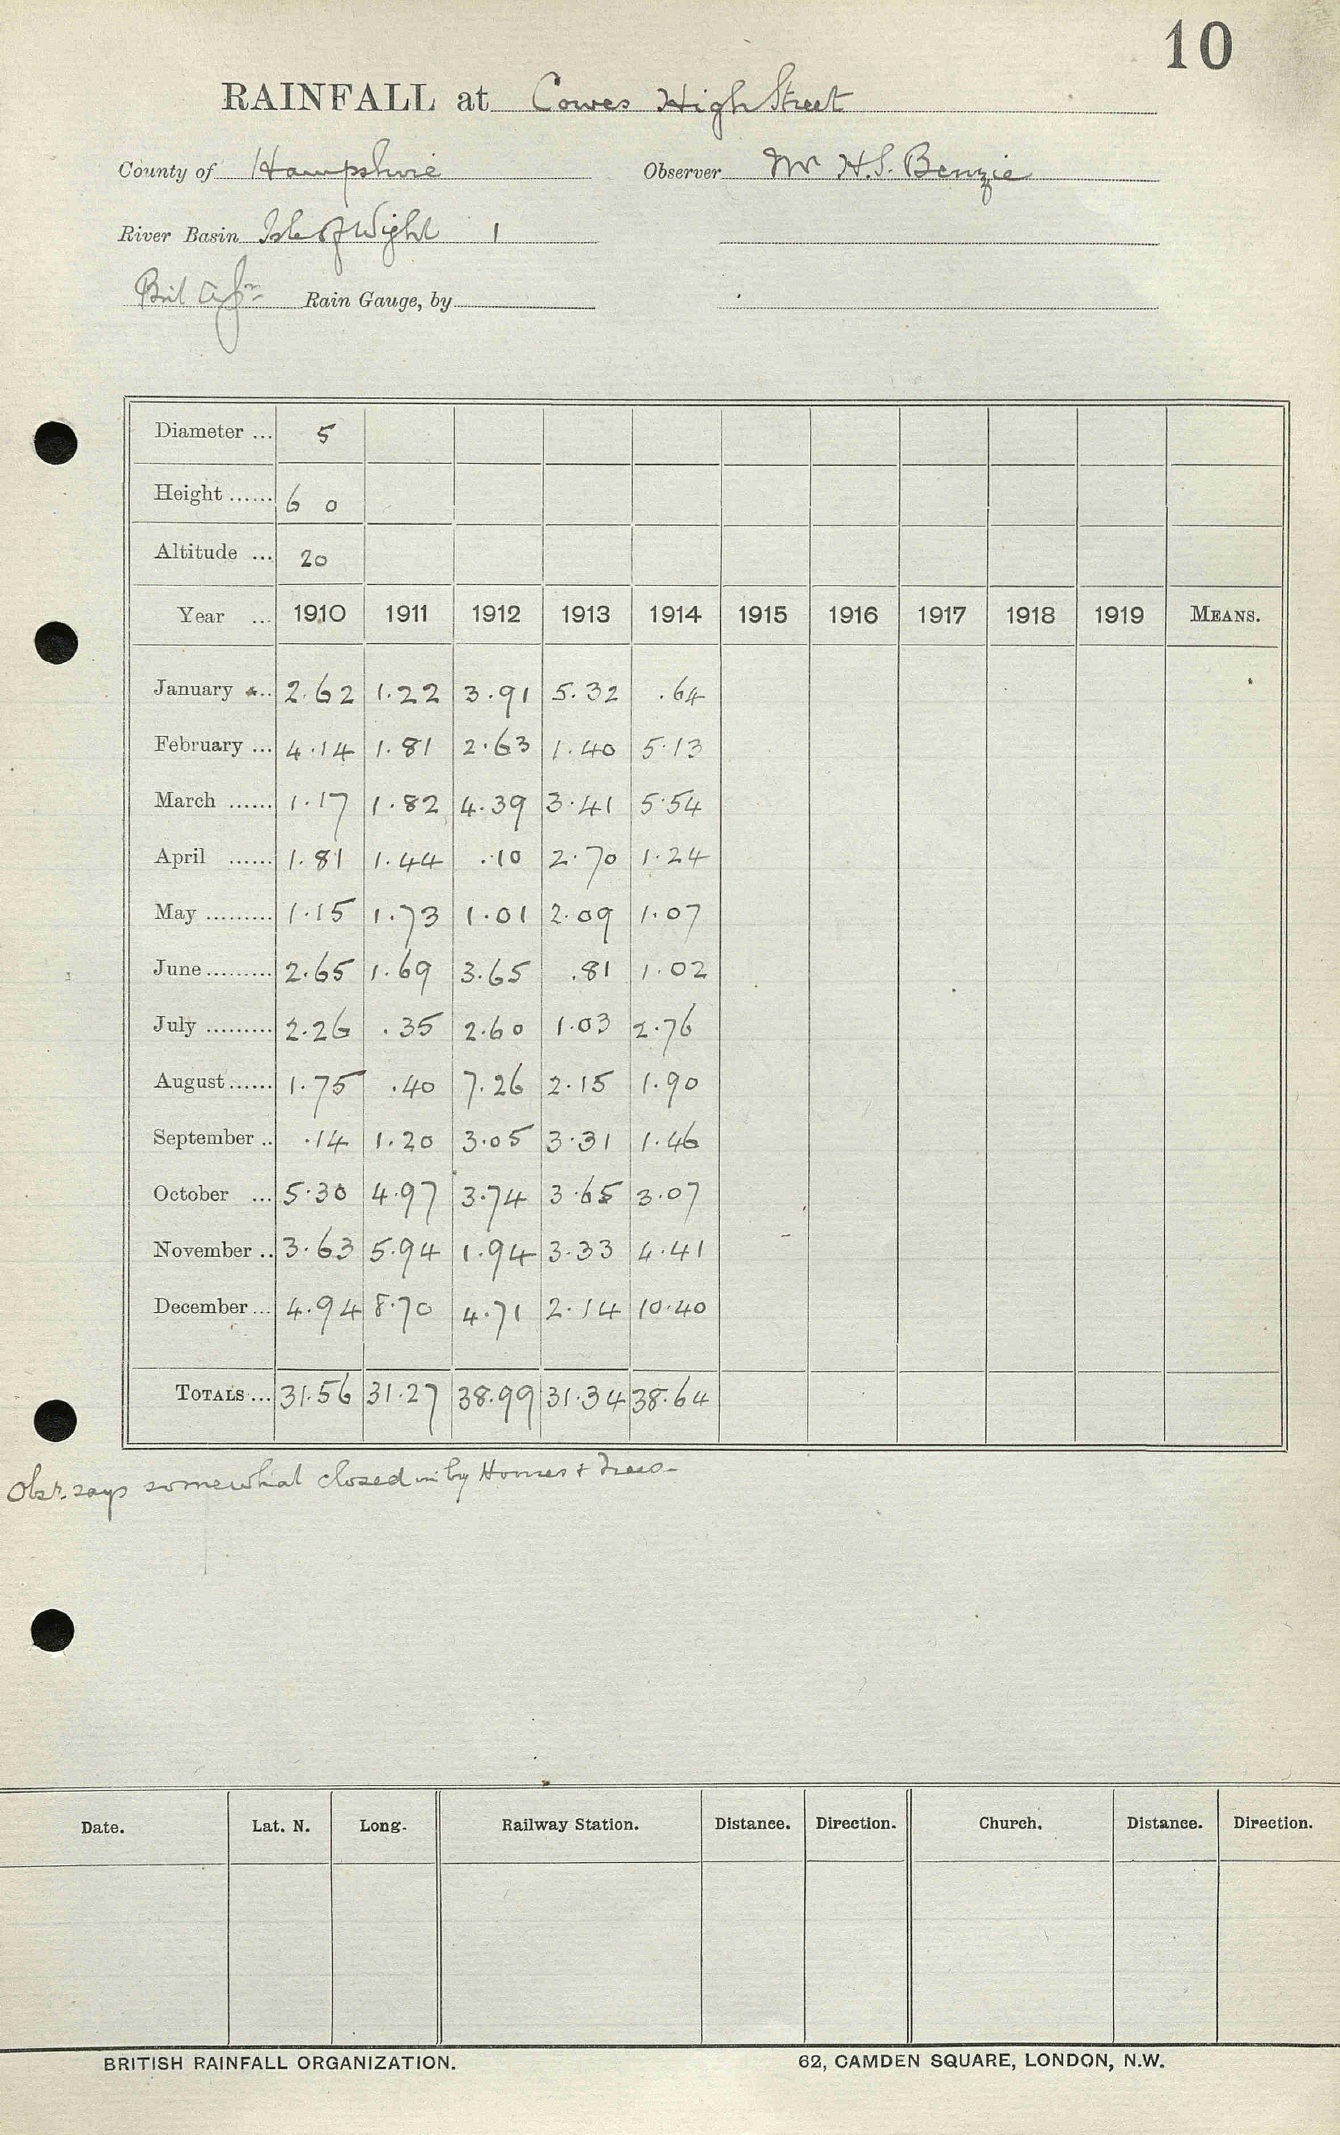 10
RAINFALL at Cowes High Street
County of Hampshire Observer Mr H.S. Benzie
River Basin Isle of Wight 1
Rain Gauge, by
Diameter ... 5
Height ...... 6 0
Altitude ... 20
Year ... 1910 1911 1912 1913 1914 1915 1916 1917 1918 1919 MEANS.
January ... 2.62 1.22 3.91 5.32 .64
February ... 4.14 1.81 2.63 1.40 5.13
March ...... 1.17 1.82 4.39 3.41 5.54
April ...... 1.81 1.44 .10 2.70 1.24
May ......... 1.15 1.73 1.01 2.09 1.07
June ......... 2.65 1.69 3.65 .81 1.02
July ......... 2.26 .35 2.60 1.03 2.76
August ...... 1.75 .40 7.26 2.15 1.90
September .. .14 1.20 3.05 3.31 1.46
October ... 5.30 4.97 3.74 3.65 3.07
November .. 3.63 5.94 1.94 3.33 4.41
December ... 4.94 8.70 4.71 2.14 10.40
TOTALS ... 31.56 31.27 38.99 31.34 38.64
Obsr. says somewhat closed in by Houses & Trees.
Date. Lat. N. Long. Railway Station. Distance. Direction. Church. Distance. Direction.
BRITISH RAINFALL ORGANIZATION. 62, CAMDEN SQUARE, LONDON, N.W.